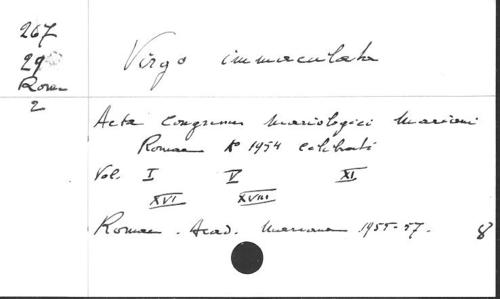 267
29
Rom
2
Virgo immaculata
Acta Congressus Mariologici Mariani
Romae Aº 1954 celebrati
Vol. I V XI
XVI XVIII
Romae. Acad. Mariana 1955-57. 8